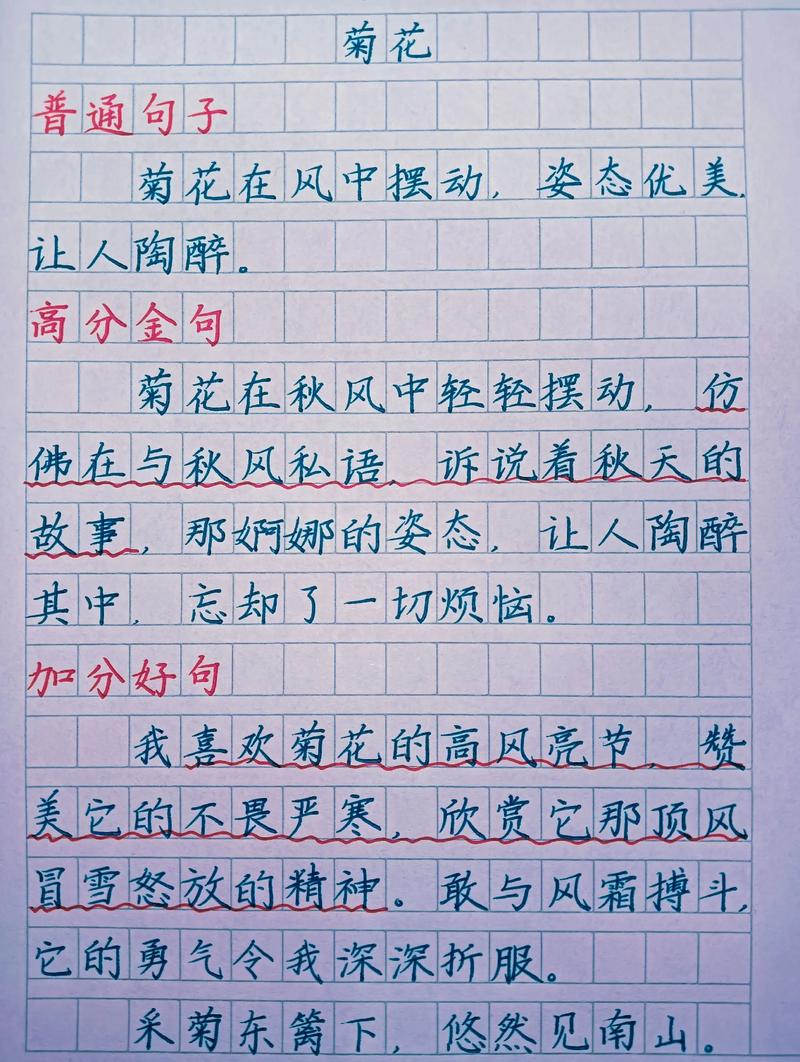 菊花
普通句子
菊花在风中摆动，姿态优美，
让人陶醉。
高分金句
菊花在秋风中轻轻摆动，仿
佛在与秋风私语，诉说着秋天的
故事，那婀娜的姿态，让人陶醉
其中，忘却了一切烦恼。
加分好句
我喜欢菊花的高风亮节，赞
美它的不畏严寒，欣赏它那顶风
冒雪怒放的精神。敢与风霜搏斗，
它的勇气令我深深折服。
采菊东篱下，悠然见南山。